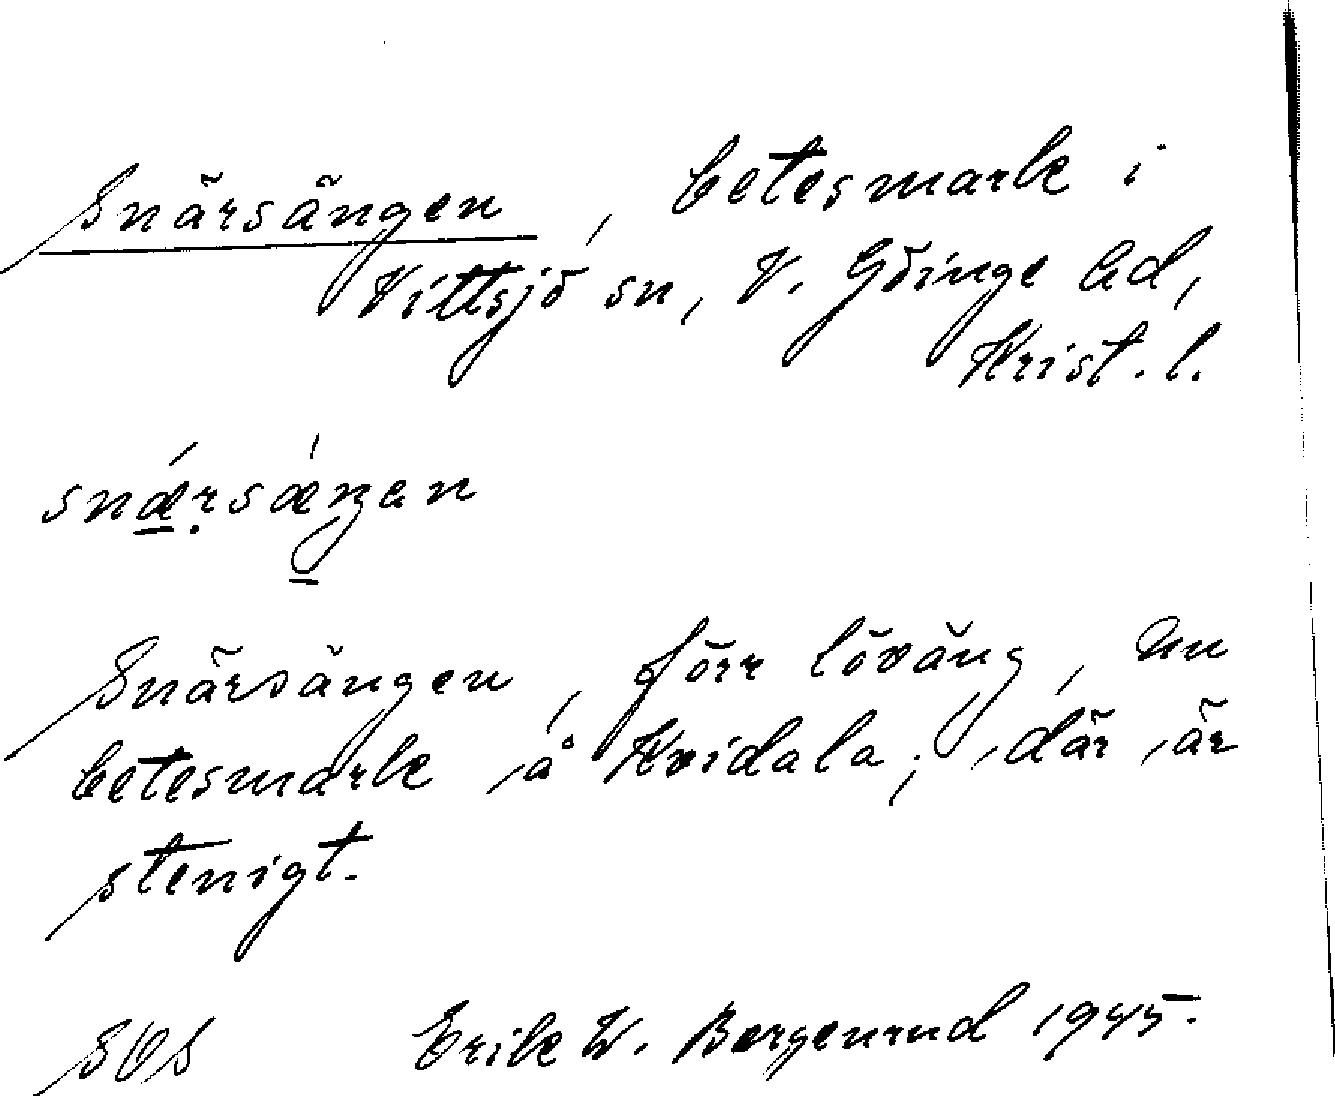 Snärsängen, betesmark i
Vittsjö sn, V. Göinge hd,
Krist. l.
snǽrsǽŋen
Snärsängen, förr löväng, nu
betesmark å Hvidala; där är
stenigt.
SOS Erik W. Bergenrud 1945.